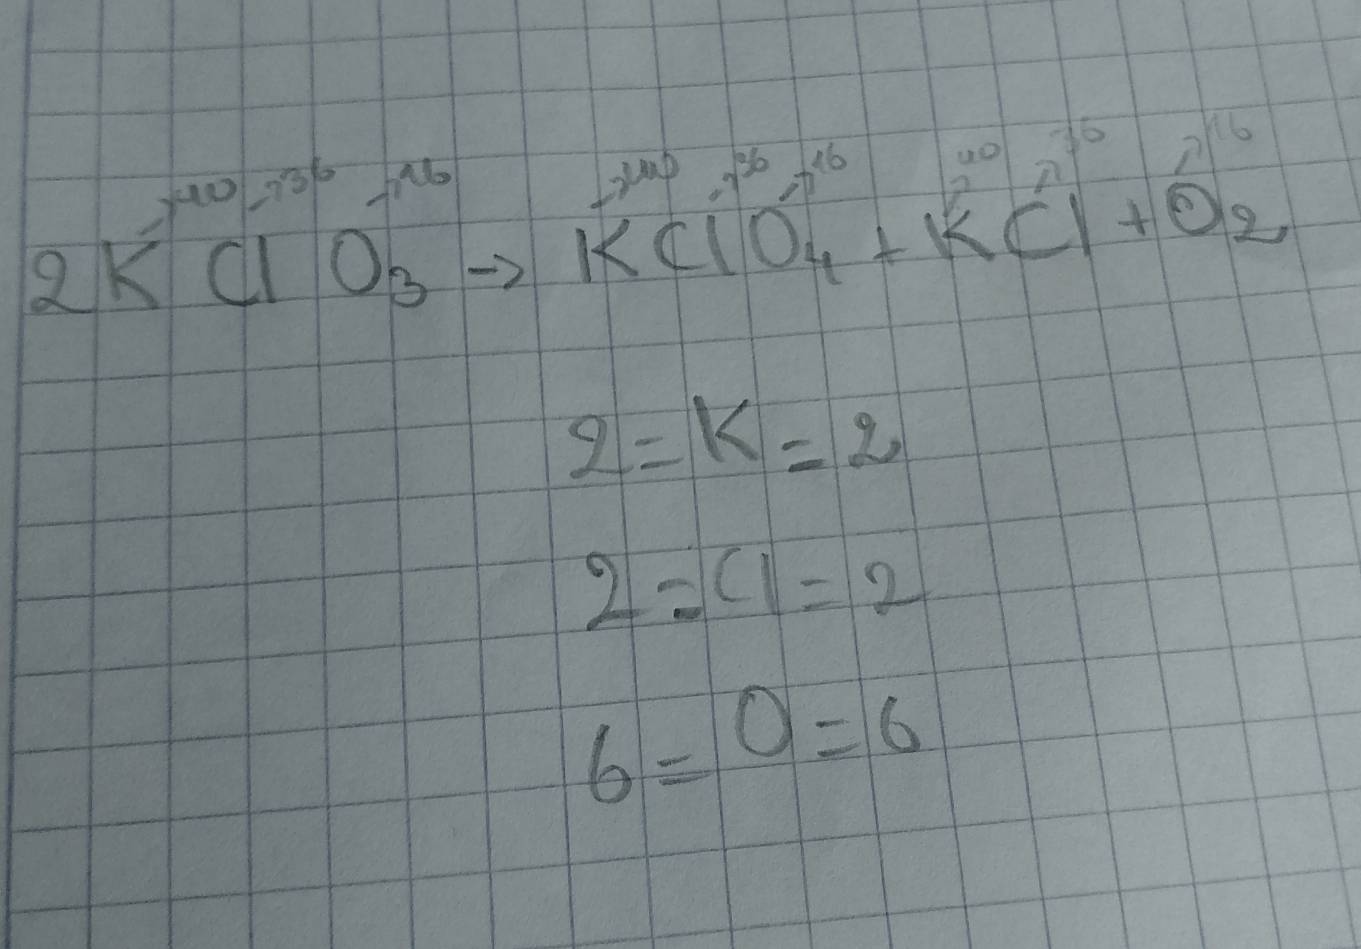 →40 →36 →16 →40 →36 →16 →40 →36 →16
2KClO₃ → KClO₄ + KCl + O₂
2 = K = 2
2 = Cl = 2
6 = O = 6